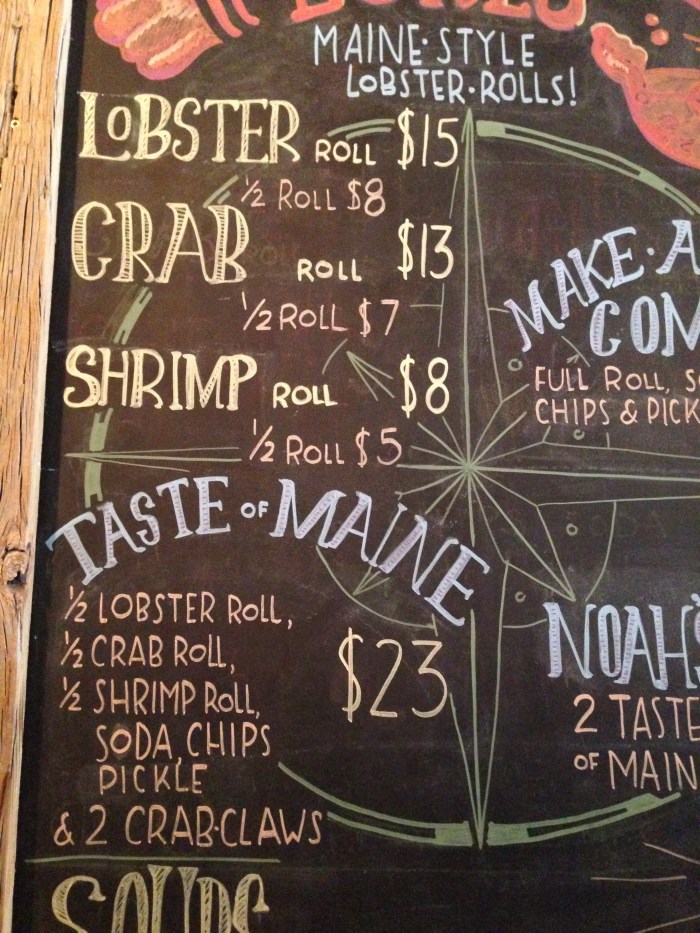 MAINE·STYLE
LOBSTER·ROLLS!
LOBSTER ROLL $15
½ ROLL $8
CRAB ROLL $13
½ ROLL $7
SHRIMP ROLL $8
½ ROLL $5
TASTE OF MAINE
½ LOBSTER ROLL,
½ CRAB ROLL,
½ SHRIMP ROLL,
SODA, CHIPS
PICKLE
& 2 CRAB·CLAWS
$23
SOUPS
MAKE·A
COM
FULL ROLL, SO
CHIPS & PICK
NOAH'S
2 TASTE
OF MAIN